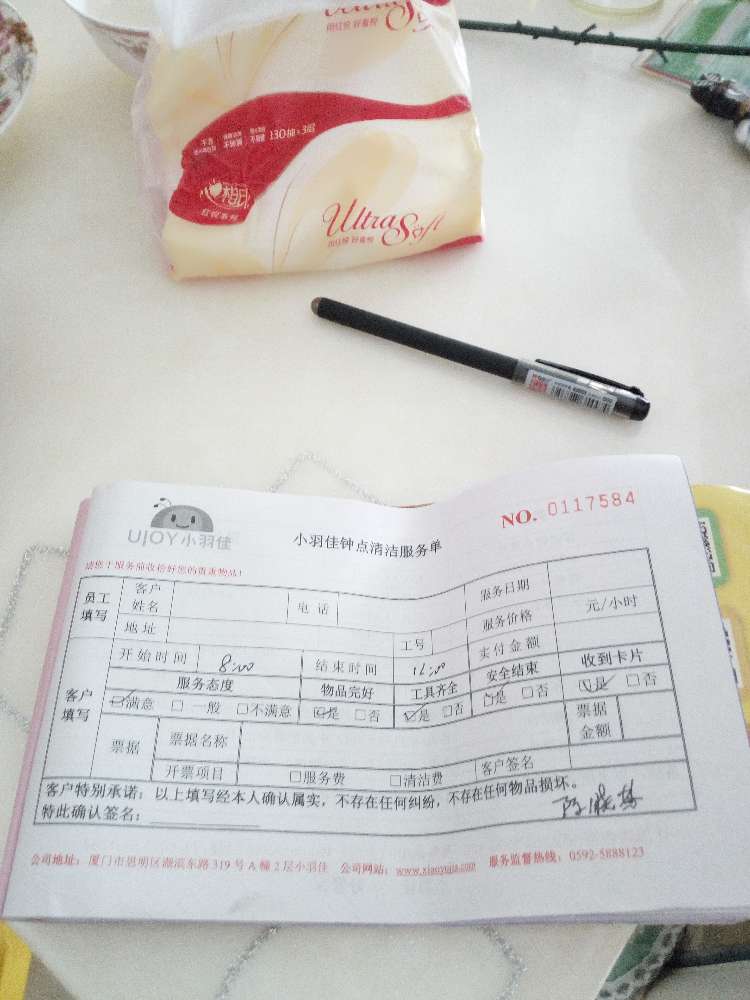 Ultra Soft
130抽×3层
Ultra Soft
NO. 0117584
UJOY小羽佳
小羽佳钟点清洁服务单
员工填写 客户姓名 电话 服务日期
地址 工号 服务价格 元/小时
支付金额
客户填写 开始时间 8:00 结束时间 12:00 安全结束 收到卡片
服务态度 物品完好 工具齐全
☑满意 □一般 □不满意 ☑是 □否 ☑是 □否 ☑是 □否 ☑是 □否
票据 票据名称 票据金额
开票项目 □服务费 □清洁费 客户签名
客户特别承诺：以上填写经本人确认属实，不存在任何纠纷，不存在任何物品损坏。
特此确认签名：
公司地址：厦门市思明区湖滨东路319号A幢2层小羽佳 公司网站：www.xiaoyujia.com 服务监督热线：0592-5888123